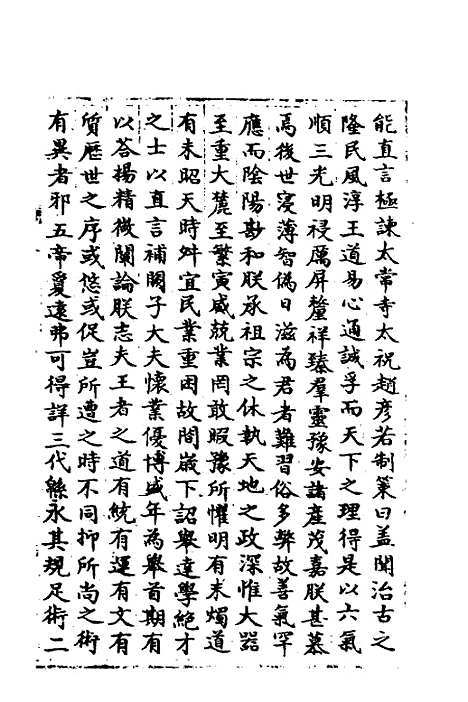 能直言極諫太常寺太祝趙彦若制策曰盖聞治古之
隆民風淳王道易心通誠孚而天下之理得是以六氣
順三光明祲厲屏釐祥臻羣靈豫安諸産茂嘉朕甚慕
焉後世寖薄智偽日滋為君者難習俗多弊故善氣罕
應而陰陽尠和朕承祖宗之休執天地之政深惟大器
至重大麓至繁寅威兢業罔敢暇豫所懼明有未燭道
有未昭天時舛宜民業重困故間嵗下詔舉達學絶才
之士以直言補闕子大夫懷業優博盛年為舉首期有
以荅揚精微闡論朕志夫王者之道有統有運有文有
質歴世之序或悠或促豈所遭之時不同抑所尚之術
有異者邪五帝敻遠弗可得詳三代緜永其規足術二